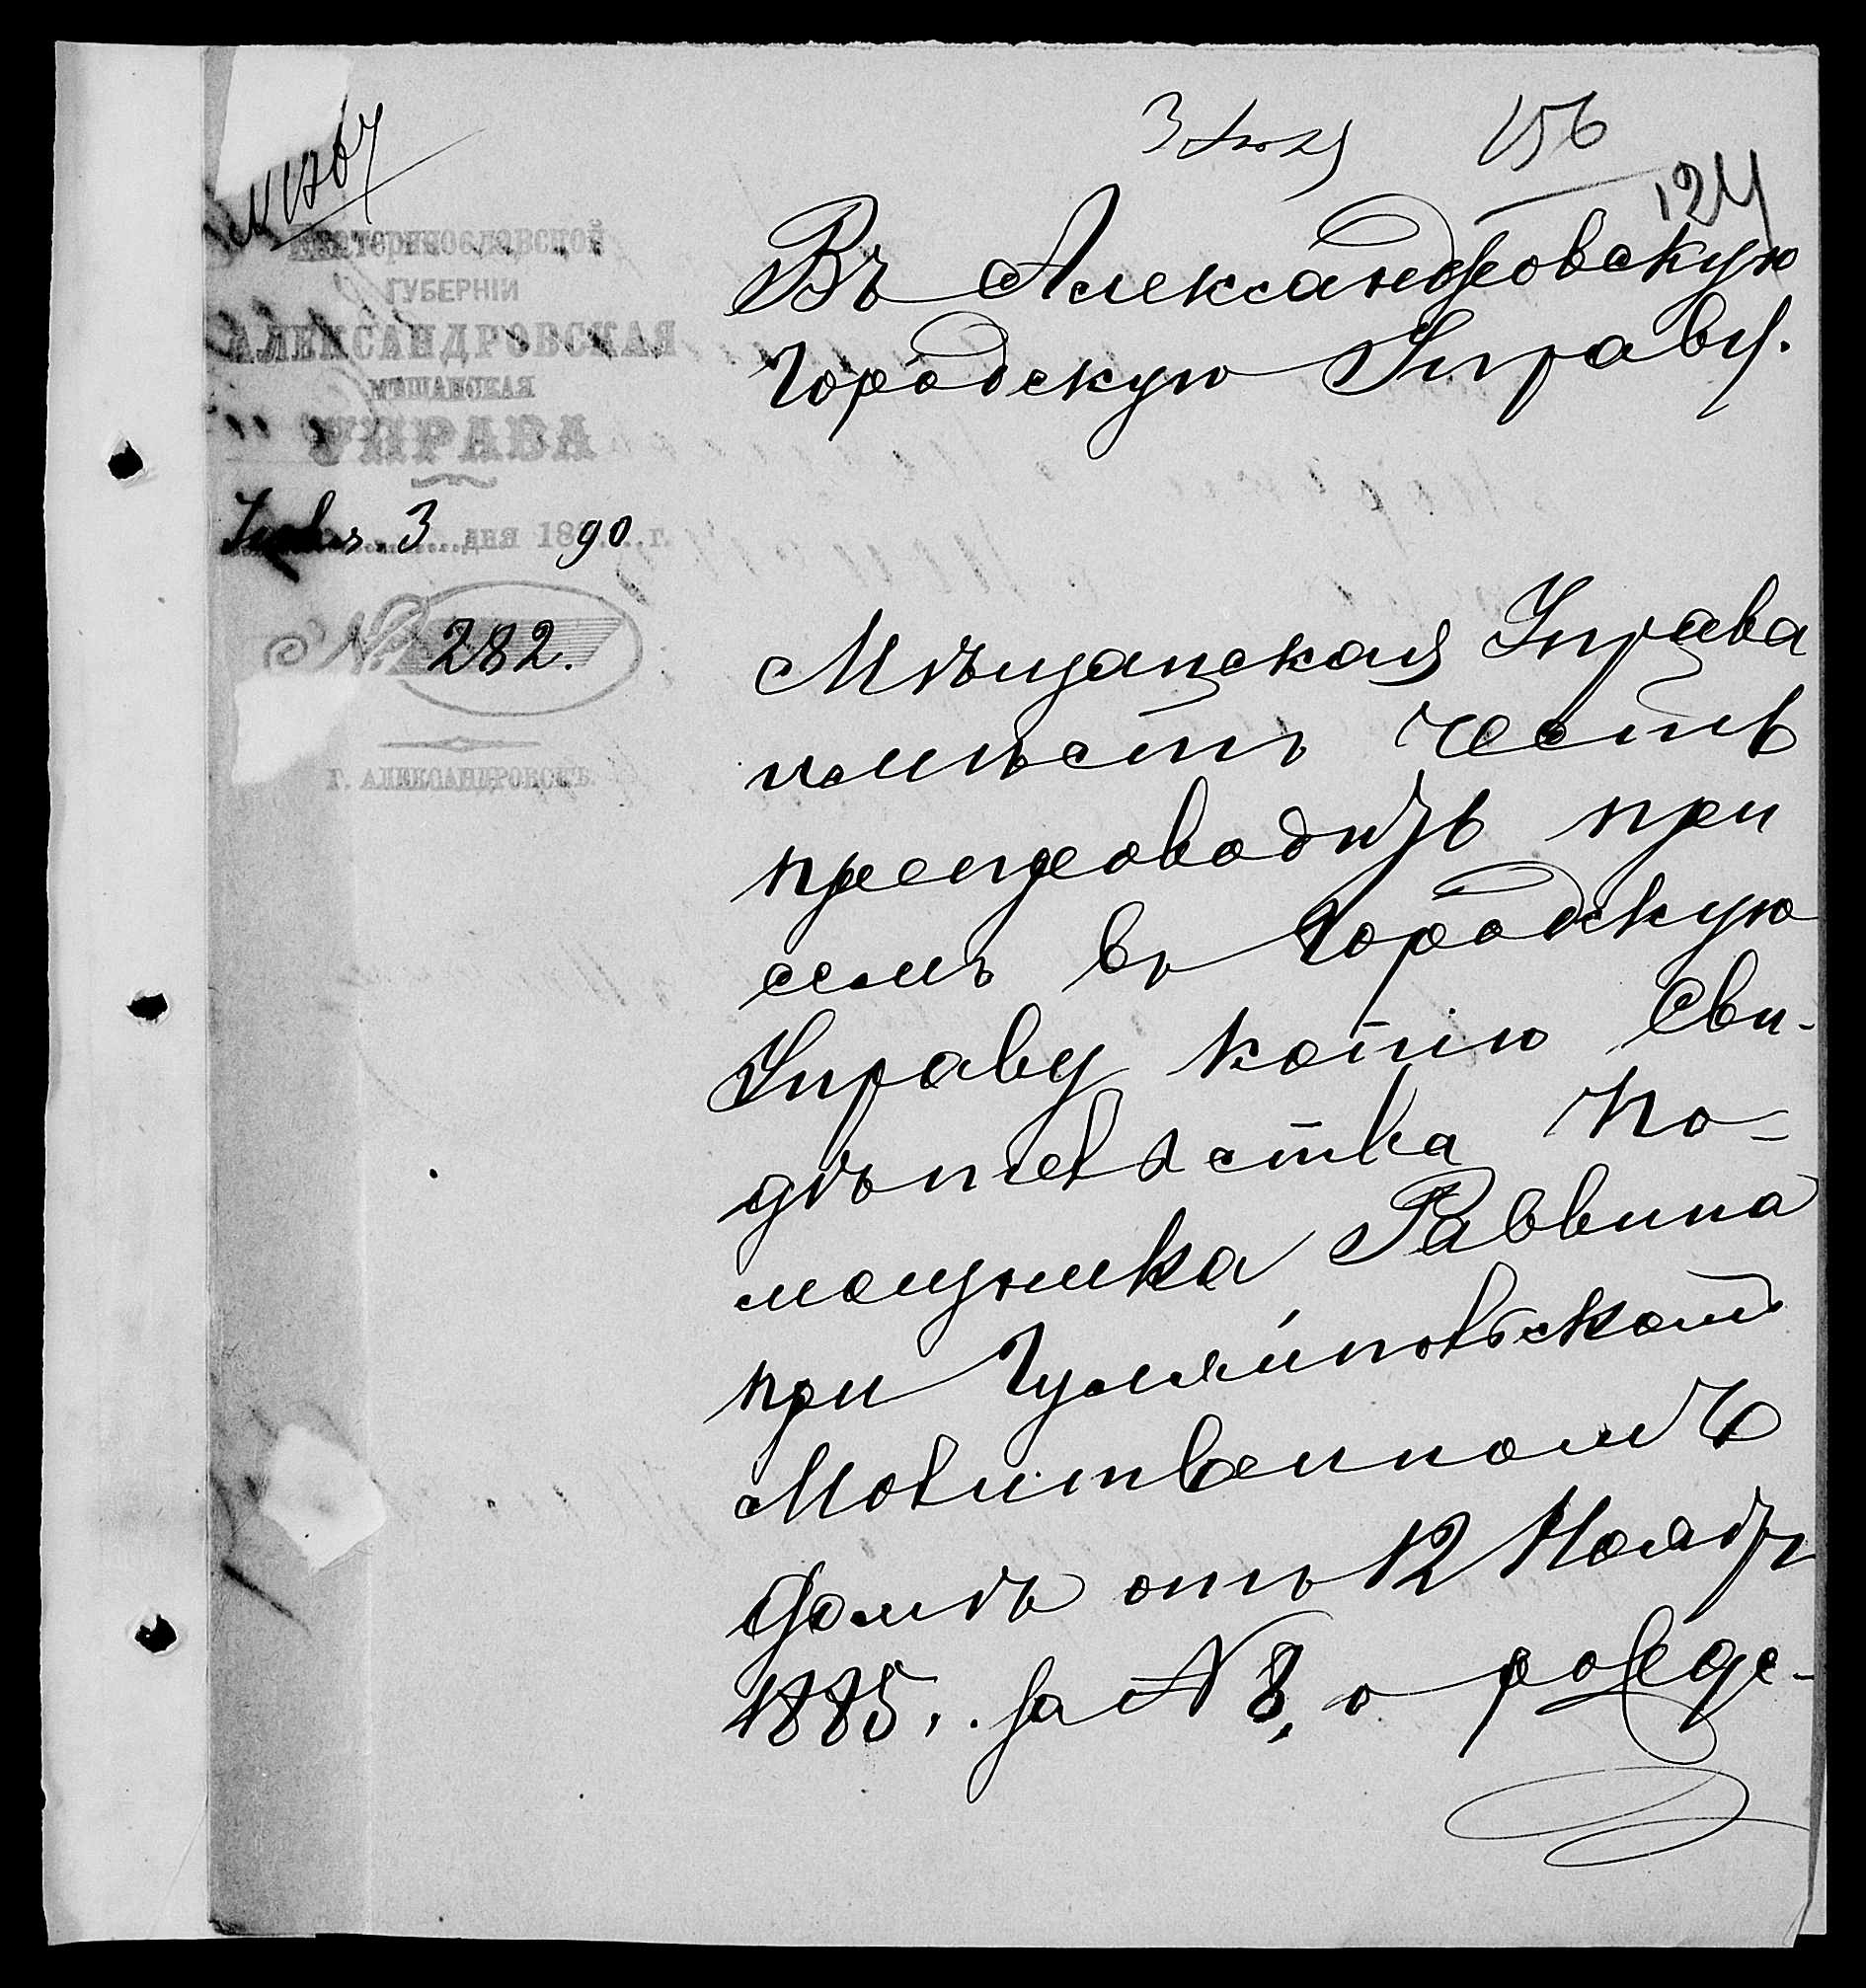 3 Июля
156
124
№ 1267
Екатеринославской
ГУБЕРНІИ
АЛЕКСАНДРОВСКАЯ
МѢЩАНСКАЯ
УПРАВА
Іюля 3 дня 1890 г.
№ 282.
Г. АЛЕКСАНДРОВСКЪ.
Въ Александровскую
Городскую Управу.
Мѣщанская Управа
имѣетъ честь
препроводить при
семъ въ Городскую
Управу копію Сви-
дѣтельства По-
мощника Раввина
при Гуляйпольском
Молитвенномъ
домѣ отъ 12 Ноября
1885, за № 8, о рожде-